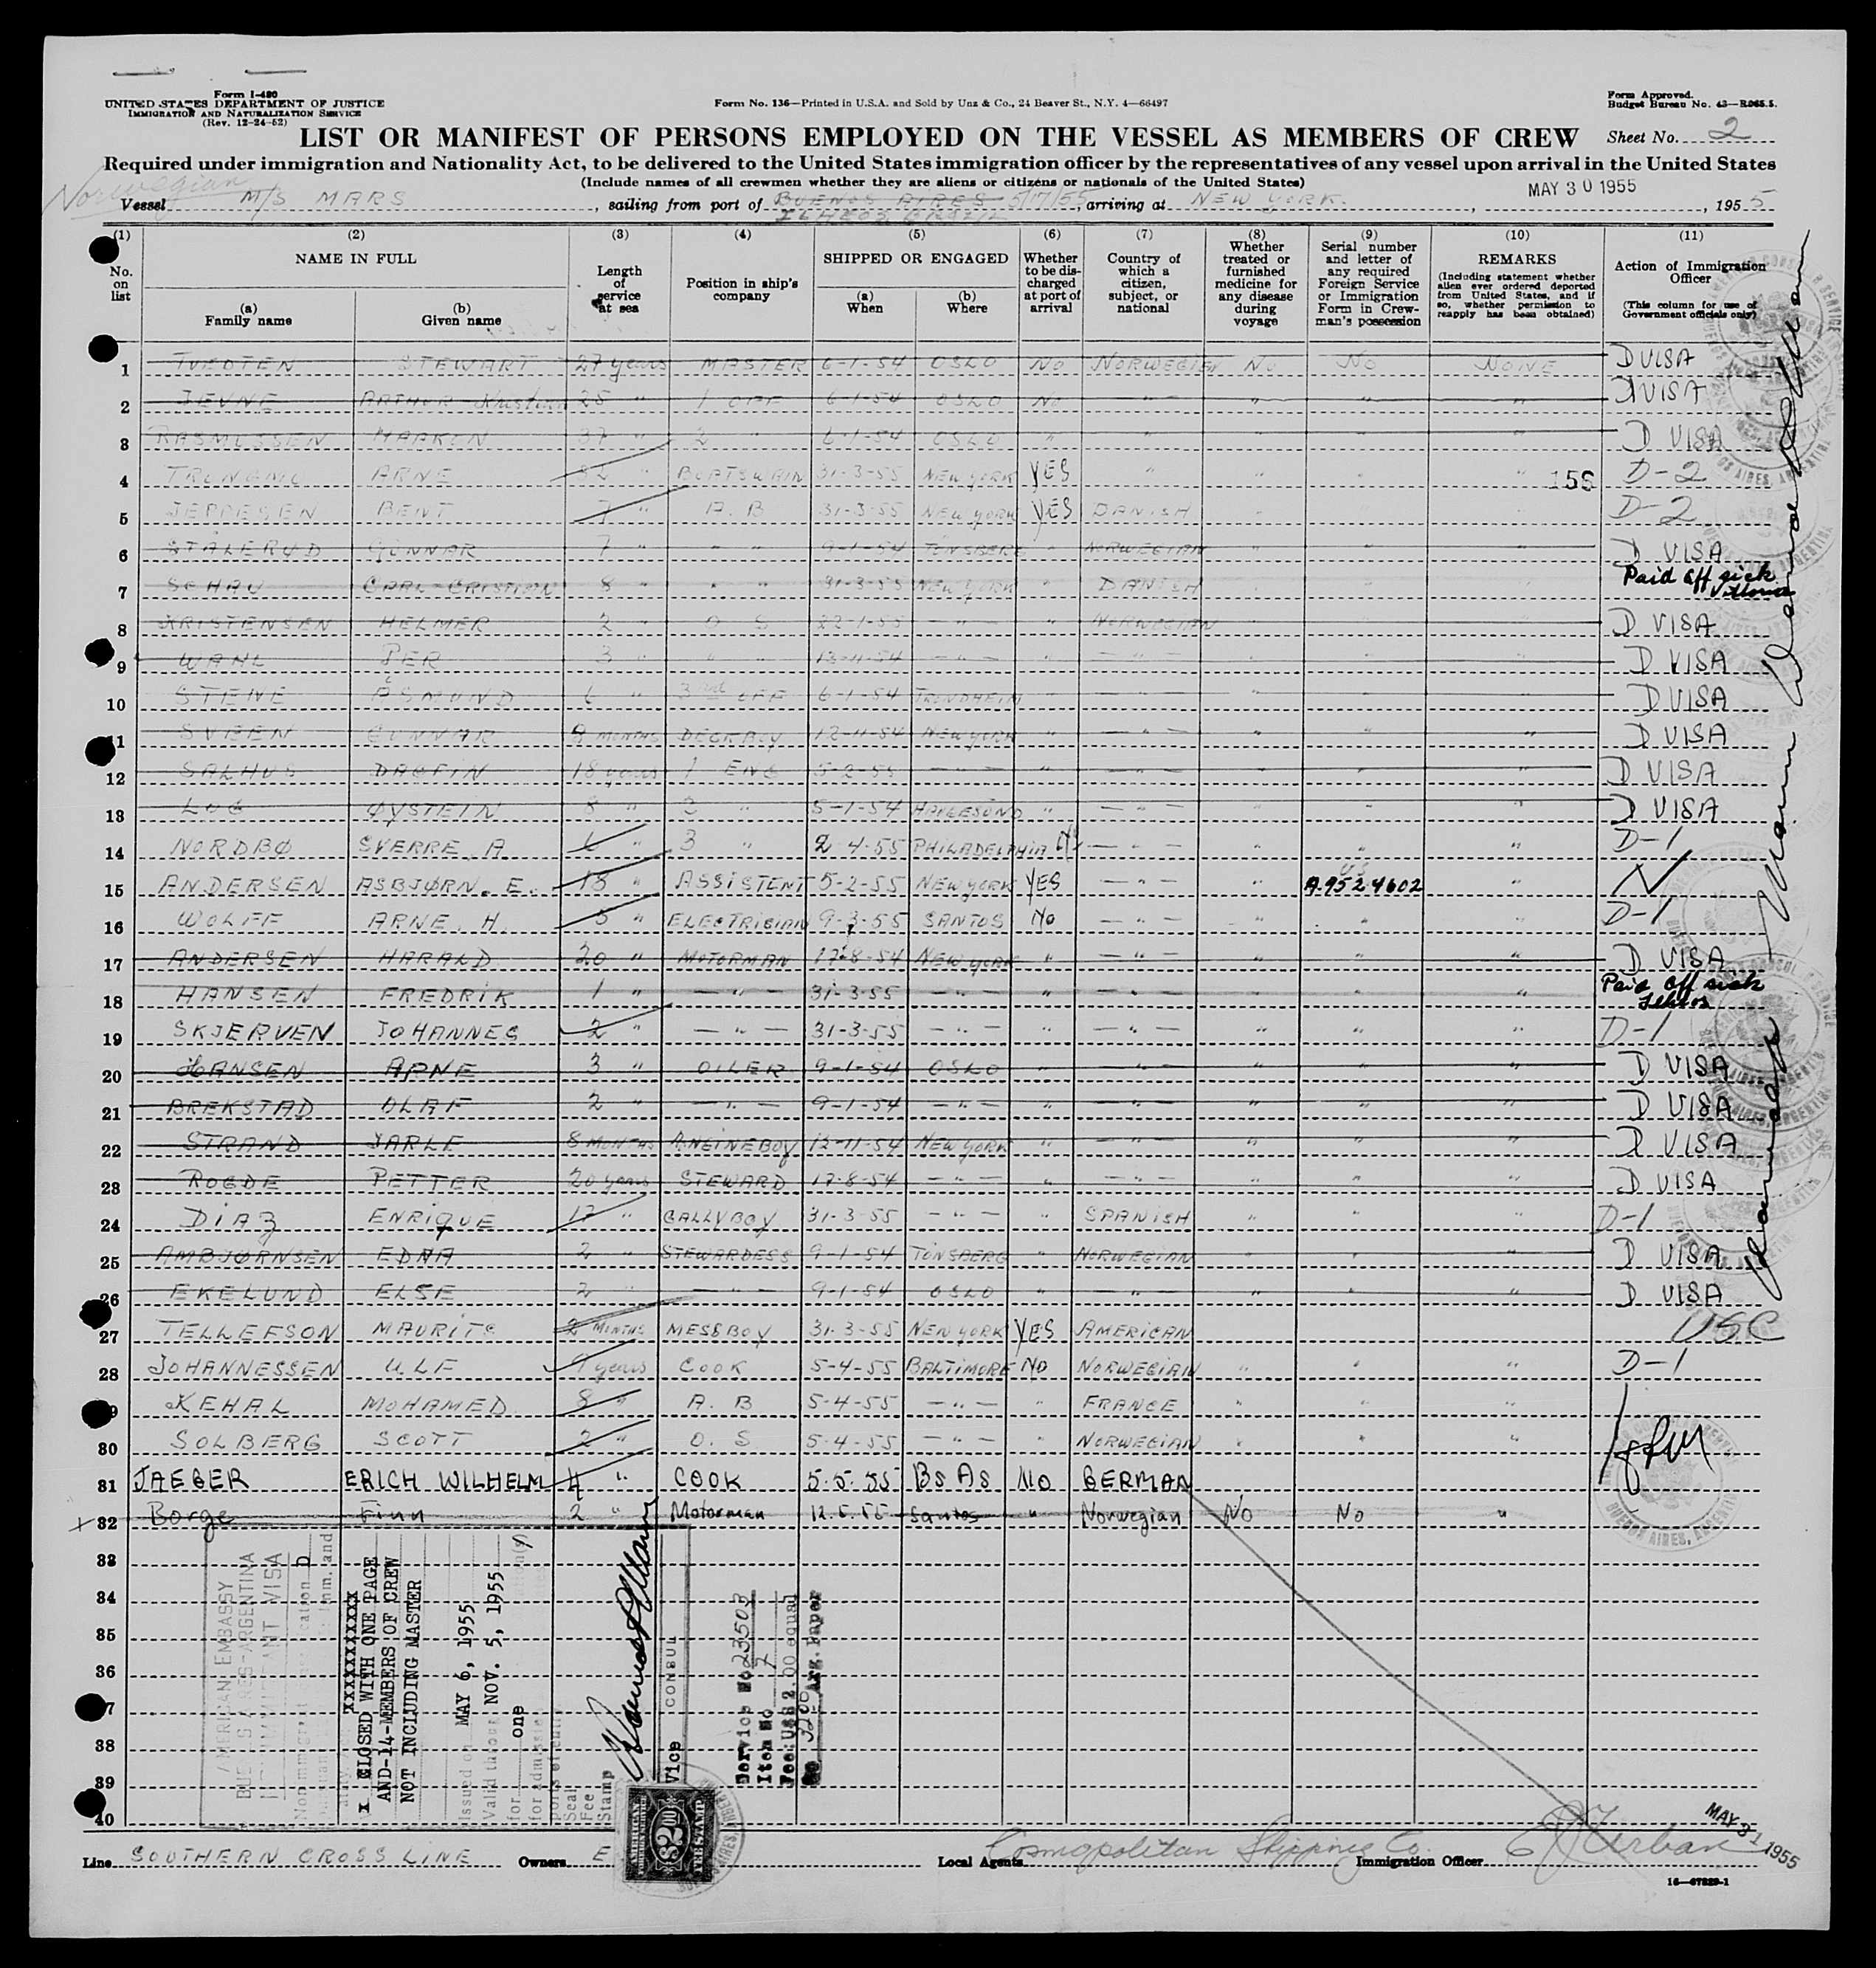 Form I-480
UNITED STATES DEPARTMENT OF JUSTICE
IMMIGRATION AND NATURALIZATION SERVICE
(Rev. 12-24-52)
Form No. 136—Printed in U.S.A. and Sold by Unz & Co., 24 Beaver St., N.Y. 4—66497
Form Approved.
Budget Bureau No. 43—R065.5.
LIST OR MANIFEST OF PERSONS EMPLOYED ON THE VESSEL AS MEMBERS OF CREW
Sheet No. 2
Required under immigration and Nationality Act, to be delivered to the United States immigration officer by the representatives of any vessel upon arrival in the United States
(Include names of all crewmen whether they are aliens or citizens or nationals of the United States)
Norwegian
MAY 30 1955
Vessel M/S MARS, sailing from port of BUENOS AIRES 5/17/55, arriving at NEW YORK, 1955
ILHEOS BRAZIL
(1) (2) (3) (4) (5) (6) (7) (8) (9) (10) (11)
No. on list
NAME IN FULL
(a) Family name
(b) Given name
Length of service at sea
Position in ship's company
SHIPPED OR ENGAGED
(a) When
(b) Where
Whether to be discharged at port of arrival
Country of which a citizen, subject, or national
Whether treated or furnished medicine for any disease during voyage
Serial number and letter of any required Foreign Service or Immigration Form in Crewman's possession
REMARKS
(Including statement whether alien ever ordered deported from United States, and if so, whether permission to reapply has been obtained)
Action of Immigration Officer
(This column for use of Government officials only)
1 TVEDTEN STEWART 27 years MASTER 6-1-54 OSLO No NORWEGIAN No No NONE D VISA
2 JEVNE ARTHUR 25 " 1 OFF 6-1-54 OSLO No " " " " D VISA
3 RASMUSSEN HAAKON 37 " 2 " 6-1-54 OSLO " " " " " D VISA
4 ARNE 32 " BOATSWAIN 31-3-55 NEW YORK YES " " " " 156 D-2
5 JEPPESEN BENT 7 " A.B 31-3-55 NEW YORK YES DANISH " " " D-2
6 STÅLERUD GUNNAR 7 " " " 9-1-54 TØNSBERG " NORWEGIAN " " " D VISA
7 SCHAU CARL-CRISTIAN 8 " " " 31-3-55 NEW YORK " DANISH " " " Paid off sick
8 KRISTENSEN HELMER 2 " O S 22-1-55 — " — " NORWEGIAN " " " D VISA
9 WAHL PER 3 " " " 13-11-54 — " — " — " — " " " D VISA
10 STENE ÅSMUND 6 " 3rd OFF 6-1-54 TRONDHEIM " — " — " " " D VISA
11 SVEEN GUNNAR 9 MONTHS DECKBOY 12-11-54 NEW YORK " — " — " " " D VISA
12 SALHUS DAGFIN 18 years 1 ENG 5-2-55 — " — " — " — " " " D VISA
13 ØYSTEIN 8 " 2 " 5-1-54 HAUGESUND " — " — " " " D VISA
14 NORDBØ SVERRE A 6 " 3 " 2-4-55 PHILADELPHIA No — " — " " " D-1
15 ANDERSEN ASBJØRN. E. 13 " ASSISTENT 5-2-55 NEW YORK YES — " — " A-9524602 " N
16 WOLFF ARNE. H. 5 " ELECTRICIAN 9-3-55 SANTOS No — " — " " " D-1
17 ANDERSEN HARALD 20 " MOTORMAN 17-8-54 NEW YORK " — " — " " " D VISA
18 HANSEN FREDRIK 1 " — " — 31-3-55 — " — " — " — " " " Paid off sick
19 SKJERVEN JOHANNES 2 " — " — 31-3-55 — " — " — " — " " " D-1
20 ARNE 3 " OILER 9-1-54 OSLO " — " — " " " D VISA
21 BREKSTAD OLAF 2 " — " — 9-1-54 — " — " — " — " " " D VISA
22 STRAND JARLE 8 MONTHS 12-11-54 NEW YORK " — " — " " " D VISA
23 ROGDE PETTER 20 years STEWARD 17-8-54 — " — " — " — " " " D VISA
24 DIAZ ENRIQUE 17 " GALLYBOY 31-3-55 — " — " SPANISH " " " D-1
25 AMBJØRNSEN EDNA 2 " STEWARDESS 9-1-54 TØNSBERG " NORWEGIAN " " " D VISA
26 EKELUND ELSE 2 " — " — 9-1-54 OSLO " — " — " " " D VISA
27 TELLEFSON MAURITS 2 MONTHS MESSBOY 31-3-55 NEW YORK YES AMERICAN USC
28 JOHANNESSEN ULF 9 years COOK 5-4-55 BALTIMORE No NORWEGIAN " " " D-1
29 KEHAL MOHAMED 8 " A. B 5-4-55 — " — " FRANCE " " "
30 SOLBERG SCOTT 2 " O. S 5-4-55 — " — " NORWEGIAN " " "
31 JAEGER ERICH WILHELM 4 " COOK 5-5-55 Bs As No GERMAN
32 Borge Finn 2 " Motorman 12.5.55 Santos " Norwegian No No "
33
34
35
36
37
38
39
40
AMERICAN EMBASSY
BUENOS AIRES-ARGENTINA
NONIMMIGRANT VISA
XXXXXXXXXX
X CLOSED WITH ONE PAGE
AND-14-MEMBERS OF CREW
NOT INCLUDING MASTER
Issued on MAY 6, 1955
Valid through NOV. 5, 1955
for one
for admission
Seal
Fee
Stamp
Vice CONSUL
Service No 23503
Item No 7
Fee: US$ 2.00 equal
Arg. Paper
$2.00
FEE STAMP
Line SOUTHERN CROSS LINE
Owners
Local Agents Cosmopolitan Shipping Co.
Immigration Officer Urban
MAY 31 1955
16—67229-1